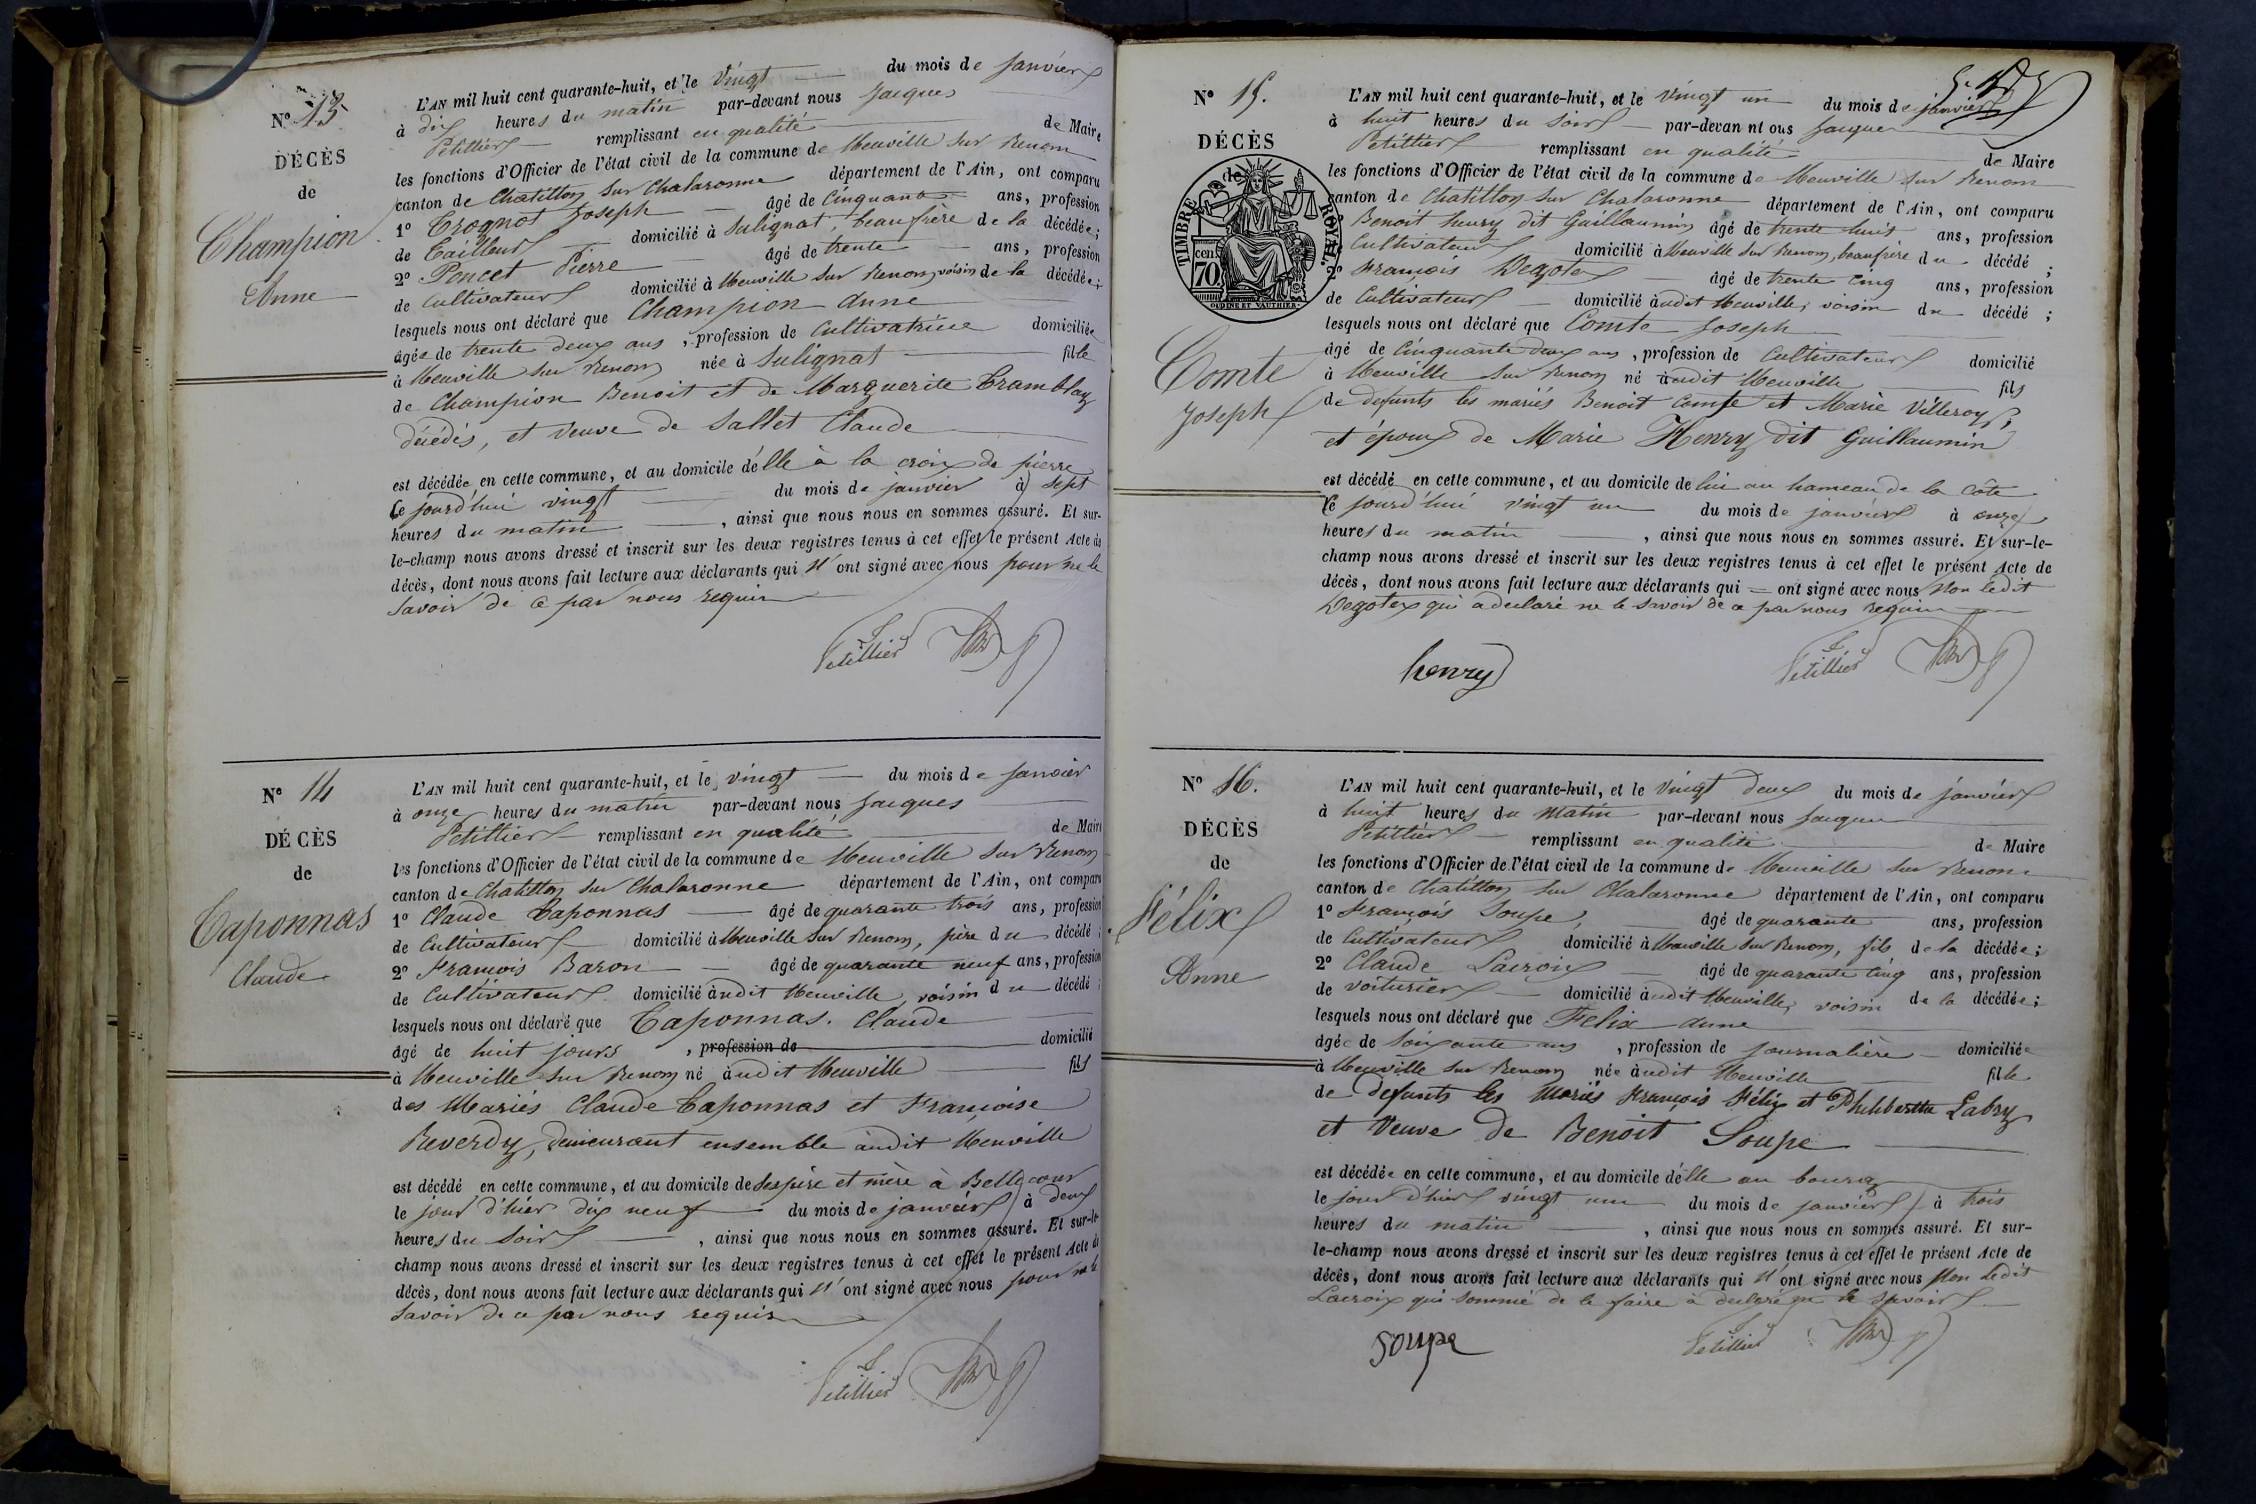 Nº 13
DÉCÈS
de
Champion
Anne
L'AN mil huit cent quarante-huit, et le vingt du mois de janvier
à dix heures du matin par-devant nous Jacques
Petittier remplissant en qualité de Maire
les fonctions d'Officier de l'état civil de la commune de Neuville sur Renom
canton de Chatillon sur Chalaronne département de l'Ain, ont comparu
1º Trognot Joseph âgé de cinquante ans, profession
de Tailleur domicilié à Sulignat, beaufrère de la décédée;
2º Poncet Pierre âgé de trente ans, profession
de cultivateur domicilié à Neuville sur Renom, voisin de la décédée;
lesquels nous ont déclaré que Champion Anne
âgée de trente deux ans, profession de Cultivatrice domiciliée
à Neuville sur Renom née à Sulignat fille
de Champion Benoit et de Marguerite Tramblay
décédés, et veuve de Sallet Claude
est décédée en cette commune, et au domicile d'elle à la croix de pierre
le jourd'hui vingt du mois de janvier à sept
heures du matin, ainsi que nous nous en sommes assuré. Et sur-
le-champ nous avons dressé et inscrit sur les deux registres tenus à cet effet le présent Acte de
décès, dont nous avons fait lecture aux déclarants qui n'ont signé avec nous pour ne le
savoir de ce par nous requis
Petittier
Nº 14
DÉCÈS
de
Taponnas
Claude
L'AN mil huit cent quarante-huit, et le vingt du mois de janvier
à onze heures du matin par-devant nous Jacques
Petittier remplissant en qualité de Maire
les fonctions d'Officier de l'état civil de la commune de Neuville sur Renom
canton de Chatillon sur Chalaronne département de l'Ain, ont comparu
1º Claude Taponnas âgé de quarante trois ans, profession
de Cultivateur domicilié à Neuville sur Renom, père du décédé;
2º François Baron âgé de quarante neuf ans, profession
de Cultivateur domicilié audit Neuville, voisin du décédé;
lesquels nous ont déclaré que Taponnas. Claude
âgé de huit jours, profession de domicilié
à Neuville sur Renom né audit Neuville fils
des Mariés Claude Taponnas et Françoise
Reverdy, demeurant ensemble audit Neuville
est décédé en cette commune, et au domicile de ses père et mère à Bellecour
le jour d'hier dix neuf du mois de janvier à deux
heures du soir, ainsi que nous nous en sommes assuré. Et sur-le-
champ nous avons dressé et inscrit sur les deux registres tenus à cet effet le présent Acte de
décès, dont nous avons fait lecture aux déclarants qui n'ont signé avec nous pour ne le
savoir de ce par nous requis
Petittier
Nº 15.
DÉCÈS
de
TIMBRE ROYAL.
70 cent.
Comte
Joseph
L'AN mil huit cent quarante-huit, et le vingt un du mois de janvier
à huit heures du soir par-devan nt ous Jacques
Petittier remplissant en qualité de Maire
les fonctions d'Officier de l'état civil de la commune de Neuville sur Renom
canton de Chatillon sur Chalaronne département de l'Ain, ont comparu
Benoit henry dit Guillaumin âgé de trente huit ans, profession
Cultivateur domicilié à Neuville sur Renom, beaufrère du décédé;
2º François Degotex âgé de trente cinq ans, profession
de Cultivateur domicilié audit Neuville, voisin du décédé;
lesquels nous ont déclaré que Comte Joseph
âgé de cinquante deux ans, profession de Cultivateur domicilié
à Neuville sur Renom né audit Neuville fils
de defunts les mariés Benoit Comte et Marie Villeroy,
et époux de Marie Henry dit Guillaumin
est décédé en cette commune, et au domicile de lui au hameau de la Côte
le jourd'hui vingt un du mois de janvier à onze
heures du matin, ainsi que nous nous en sommes assuré. Et sur-le-
champ nous avons dressé et inscrit sur les deux registres tenus à cet effet le présent Acte de
décès, dont nous avons fait lecture aux déclarants qui ont signé avec nous Non ledit
Degotex qui a declaré ne le savoir de ce par nous requis
henry
Petittier
Nº 16.
DÉCÈS
de
Félix
Anne
L'AN mil huit cent quarante-huit, et le vingt deux du mois de janvier
à huit heures du matin par-devant nous Jacques
Petittier remplissant en qualité de Maire
les fonctions d'Officier de l'état civil de la commune de Neuville sur Renom
canton de Chatillon sur Chalaronne département de l'Ain, ont comparu
1º François Soupe, âgé de quarante ans, profession
de Cultivateur domicilié à Neuville sur Renom, fils de la décédée;
2º Claude Lacroix âgé de quarante cinq ans, profession
de voiturier domicilié audit Neuville, voisin de la décédée;
lesquels nous ont déclaré que Felix Anne
âgée de soixante ans, profession de journalière domiciliée
à Neuville sur Renom née audit Neuville fille
de defunts les mariés François Félix et Philiberthe Labry
et Veuve de Benoit Soupe
est décédée en cette commune, et au domicile d'elle au bourg
le jour d'hier vingt un du mois de janvier à trois
heures du matin, ainsi que nous nous en sommes assuré. Et sur-
le-champ nous avons dressé et inscrit sur les deux registres tenus à cet effet le présent Acte de
décès, dont nous avons fait lecture aux déclarants qui n'ont signé avec nous Non ledit
Lacroix qui sommé de le faire a declaré ne le savoir
Soupe
Petittier